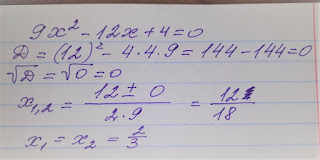 9x² - 12x + 4 = 0
D = (12)² - 4·4·9 = 144 - 144 = 0
√D = √0 = 0
x₁,₂ = (12 ± 0)/(2·9) = 12/18
x₁ = x₂ = 2/3